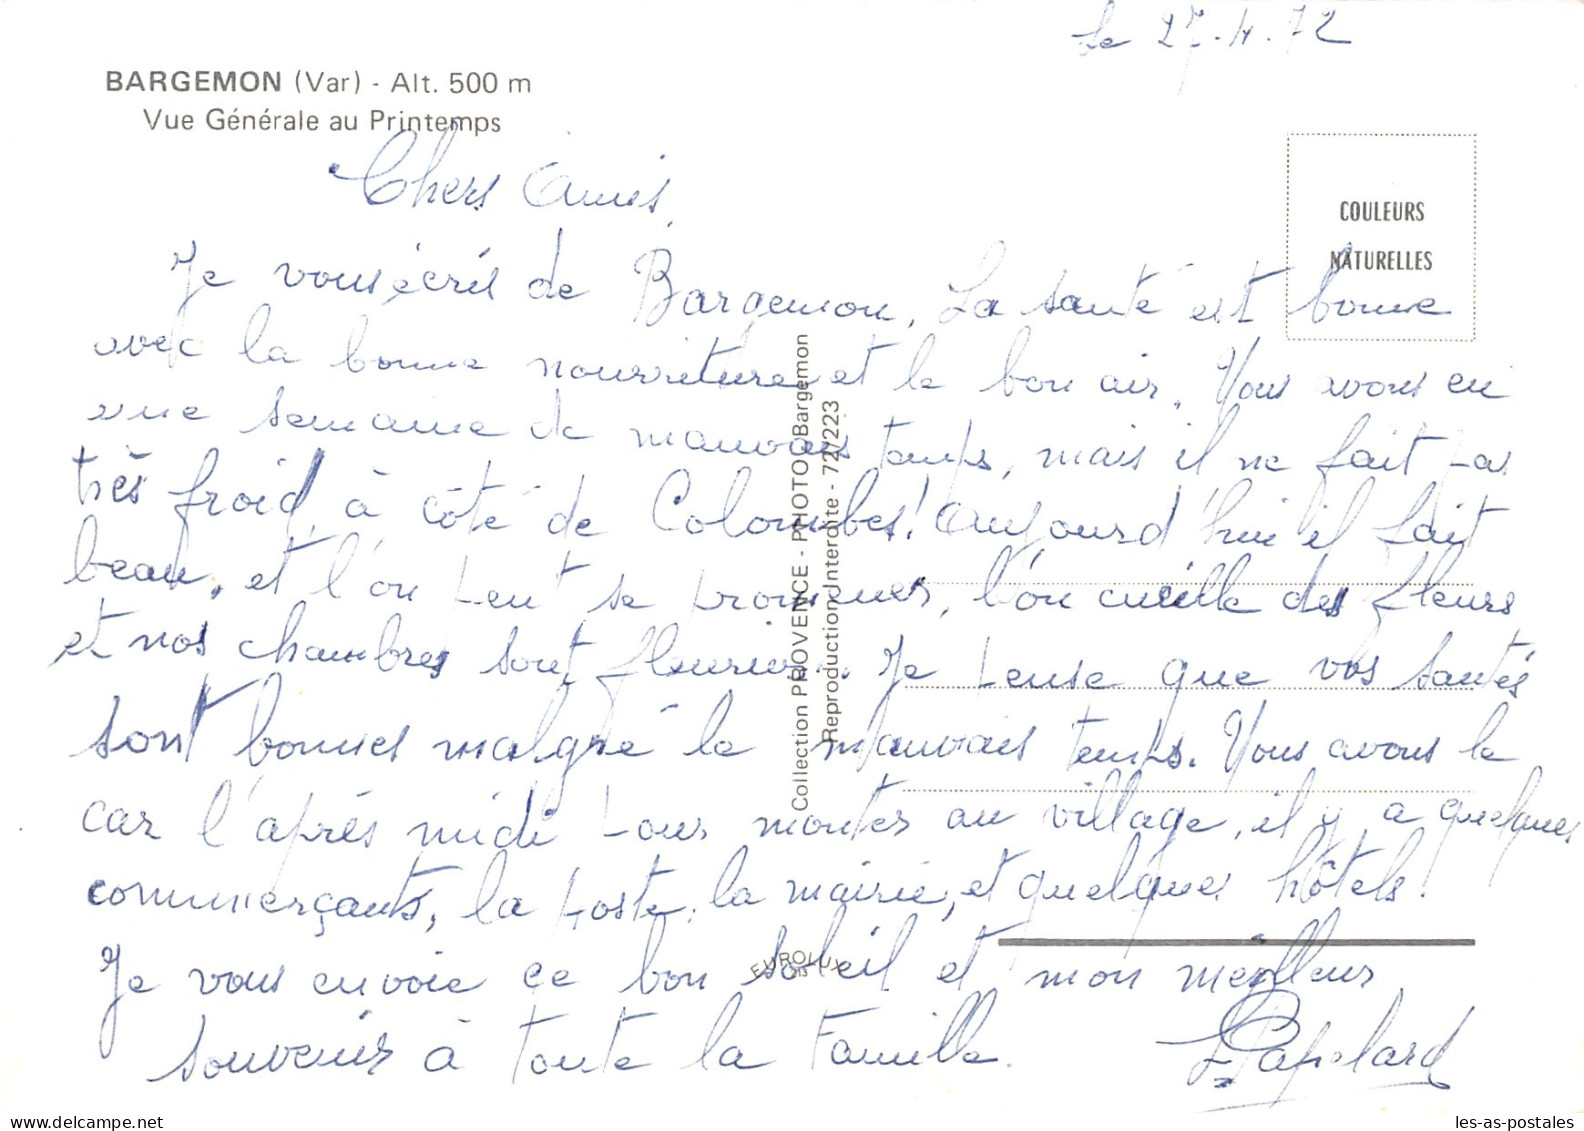 le 27.4.72
BARGEMON (Var) - Alt. 500 m
Vue Générale au Printemps
COULEURS
NATURELLES
Chers Amis,
Je vous écris de Bargemon. La santé est bonne
avec la bonne nourriture et le bon air. Nous avons eu
une semaine de mauvais temps, mais il ne fait pas
très froid, à côté de Colombes! Aujourd'hui il fait
beau, et l'on peut se promener, l'on cueille des fleurs
et nos chambres sont fleuries. Je pense que vos santés
sont bonnes malgré le mauvais temps. Nous avons le
car l'après midi pour monter au village, il y a quelques
commerçants, la poste, la mairie, et quelques hôtels.
Je vous envoie ce bon soleil et mon meilleur
souvenir à toute la Famille.
Papelard
Collection PROVENCE - PHOTO Bargemon
Reproduction Interdite - 727/223
EUROLUX
les-as-postales